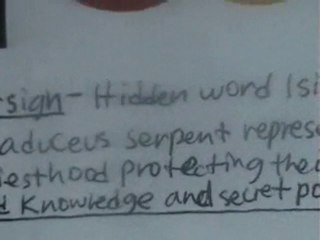 -sign - Hidden word Isi
aduceus serpent represe
iesthood protecting the
d Knowledge and secret po